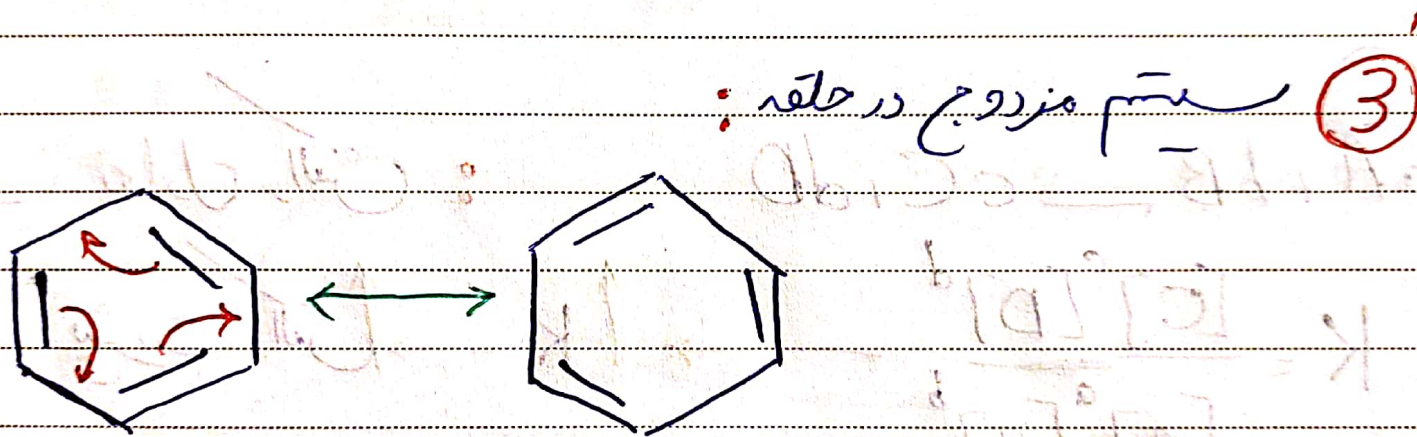 ③ سیستم مزدوج در حلقه :